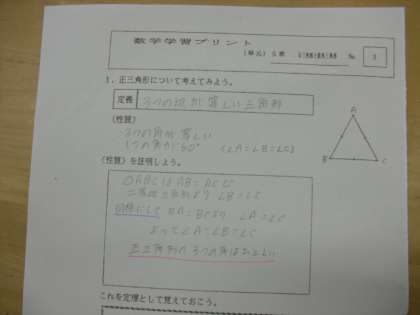 数学学習プリント
(単元) 5章 正三角形と直角三角形 No 3
1.正三角形について考えてみよう。
定義 3つの辺が等しい三角形
(性質)
3つの角が等しい
1つの角が60° (∠A=∠B=∠C)
A
B C
(性質)を証明しよう。
△ABCはAB=ACで
二等辺三角形より ∠B=∠C
同様にして BA=BCより ∠A=∠C
よって∠A=∠B=∠C
正三角形の3つの角はひとしい
これを定理として覚えておこう。